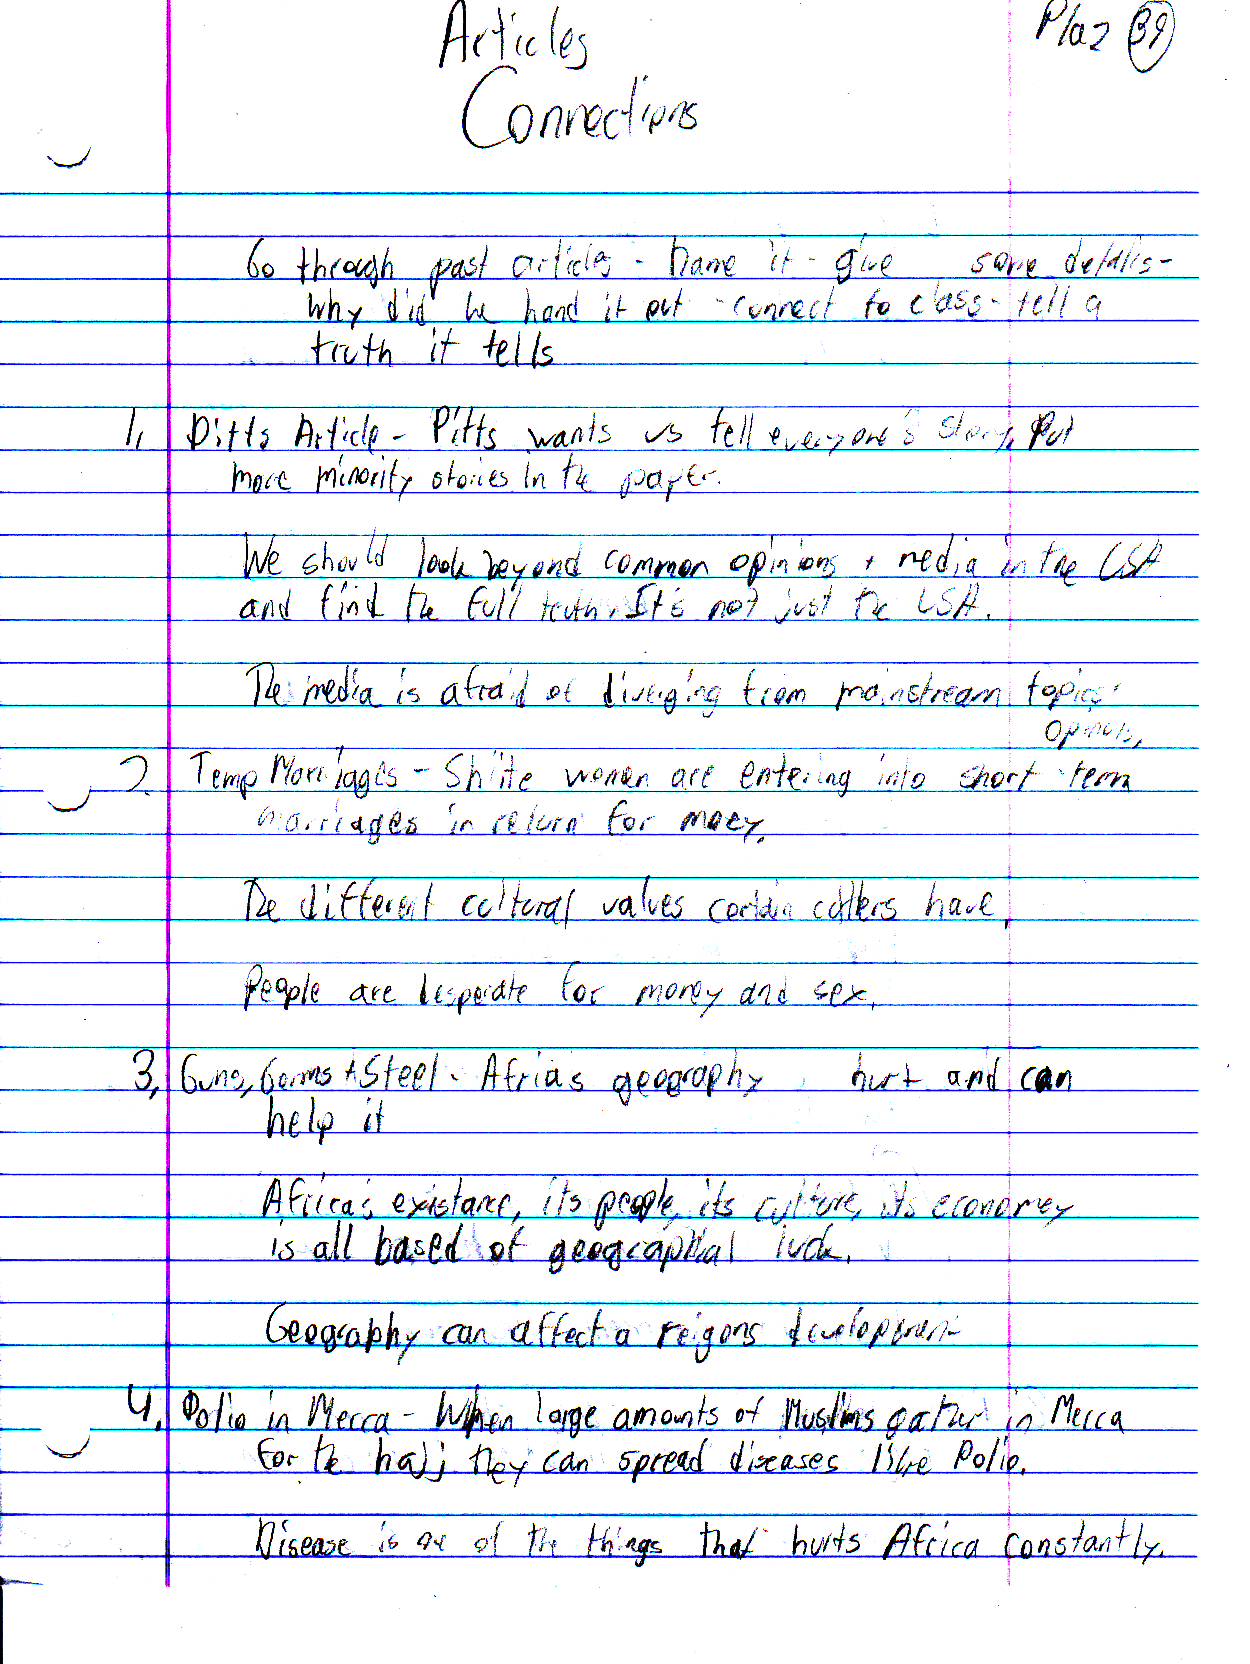 Articles
Connections
Pla2 39
Go through past articles - name it - give some details -
why did he hand it out - connect to class - tell a
truth it tells
1. Pitts Article - Pitts wants us tell everyone's story. Put
more minority stories in the paper.
We should look beyond common opinions + media in the USA
and find the full truth. It's not just the USA.
The media is afraid of diverging from mainstream topics
opinons,
2. Temp Marriages - Shiite women are entering into short term
marriages in return for moey.
The different cultural values certain culters have,
People are desperate for money and sex.
3, Guns, Germs + Steel - Africa's geography hurt and can
help it
Africa's existance, its people, its culture, its economey
is all based of geographial luck.
Geography can affect a reigons development
4. Polio in Mecca - When large amounts of Muslims gather in Mecca
for the hajj they can spread diseases like Polio.
Disease is one of the things that hurts Africa constantly.